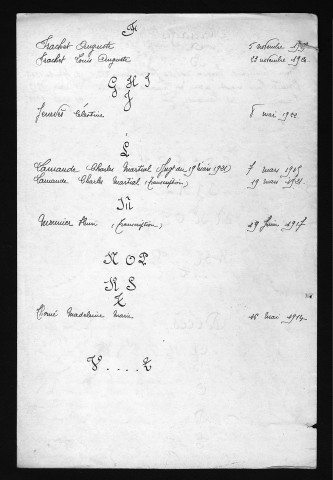 F
Frachet Auguste 5 novembre
Frachet Louis Auguste 23 novembre
G H I
J
Célestine 8 mai 1922
L
Lamande Charles Martial (Jugt du 19 mars 1921) 7 mars 1915
Lamande Charles Martial (transcription) 19 mars 1921
M
Meunier Henri (transcription) 29 Juin 1917
N O P
R S
T
Madeleine Marie 15 mai 1914
V .... Z